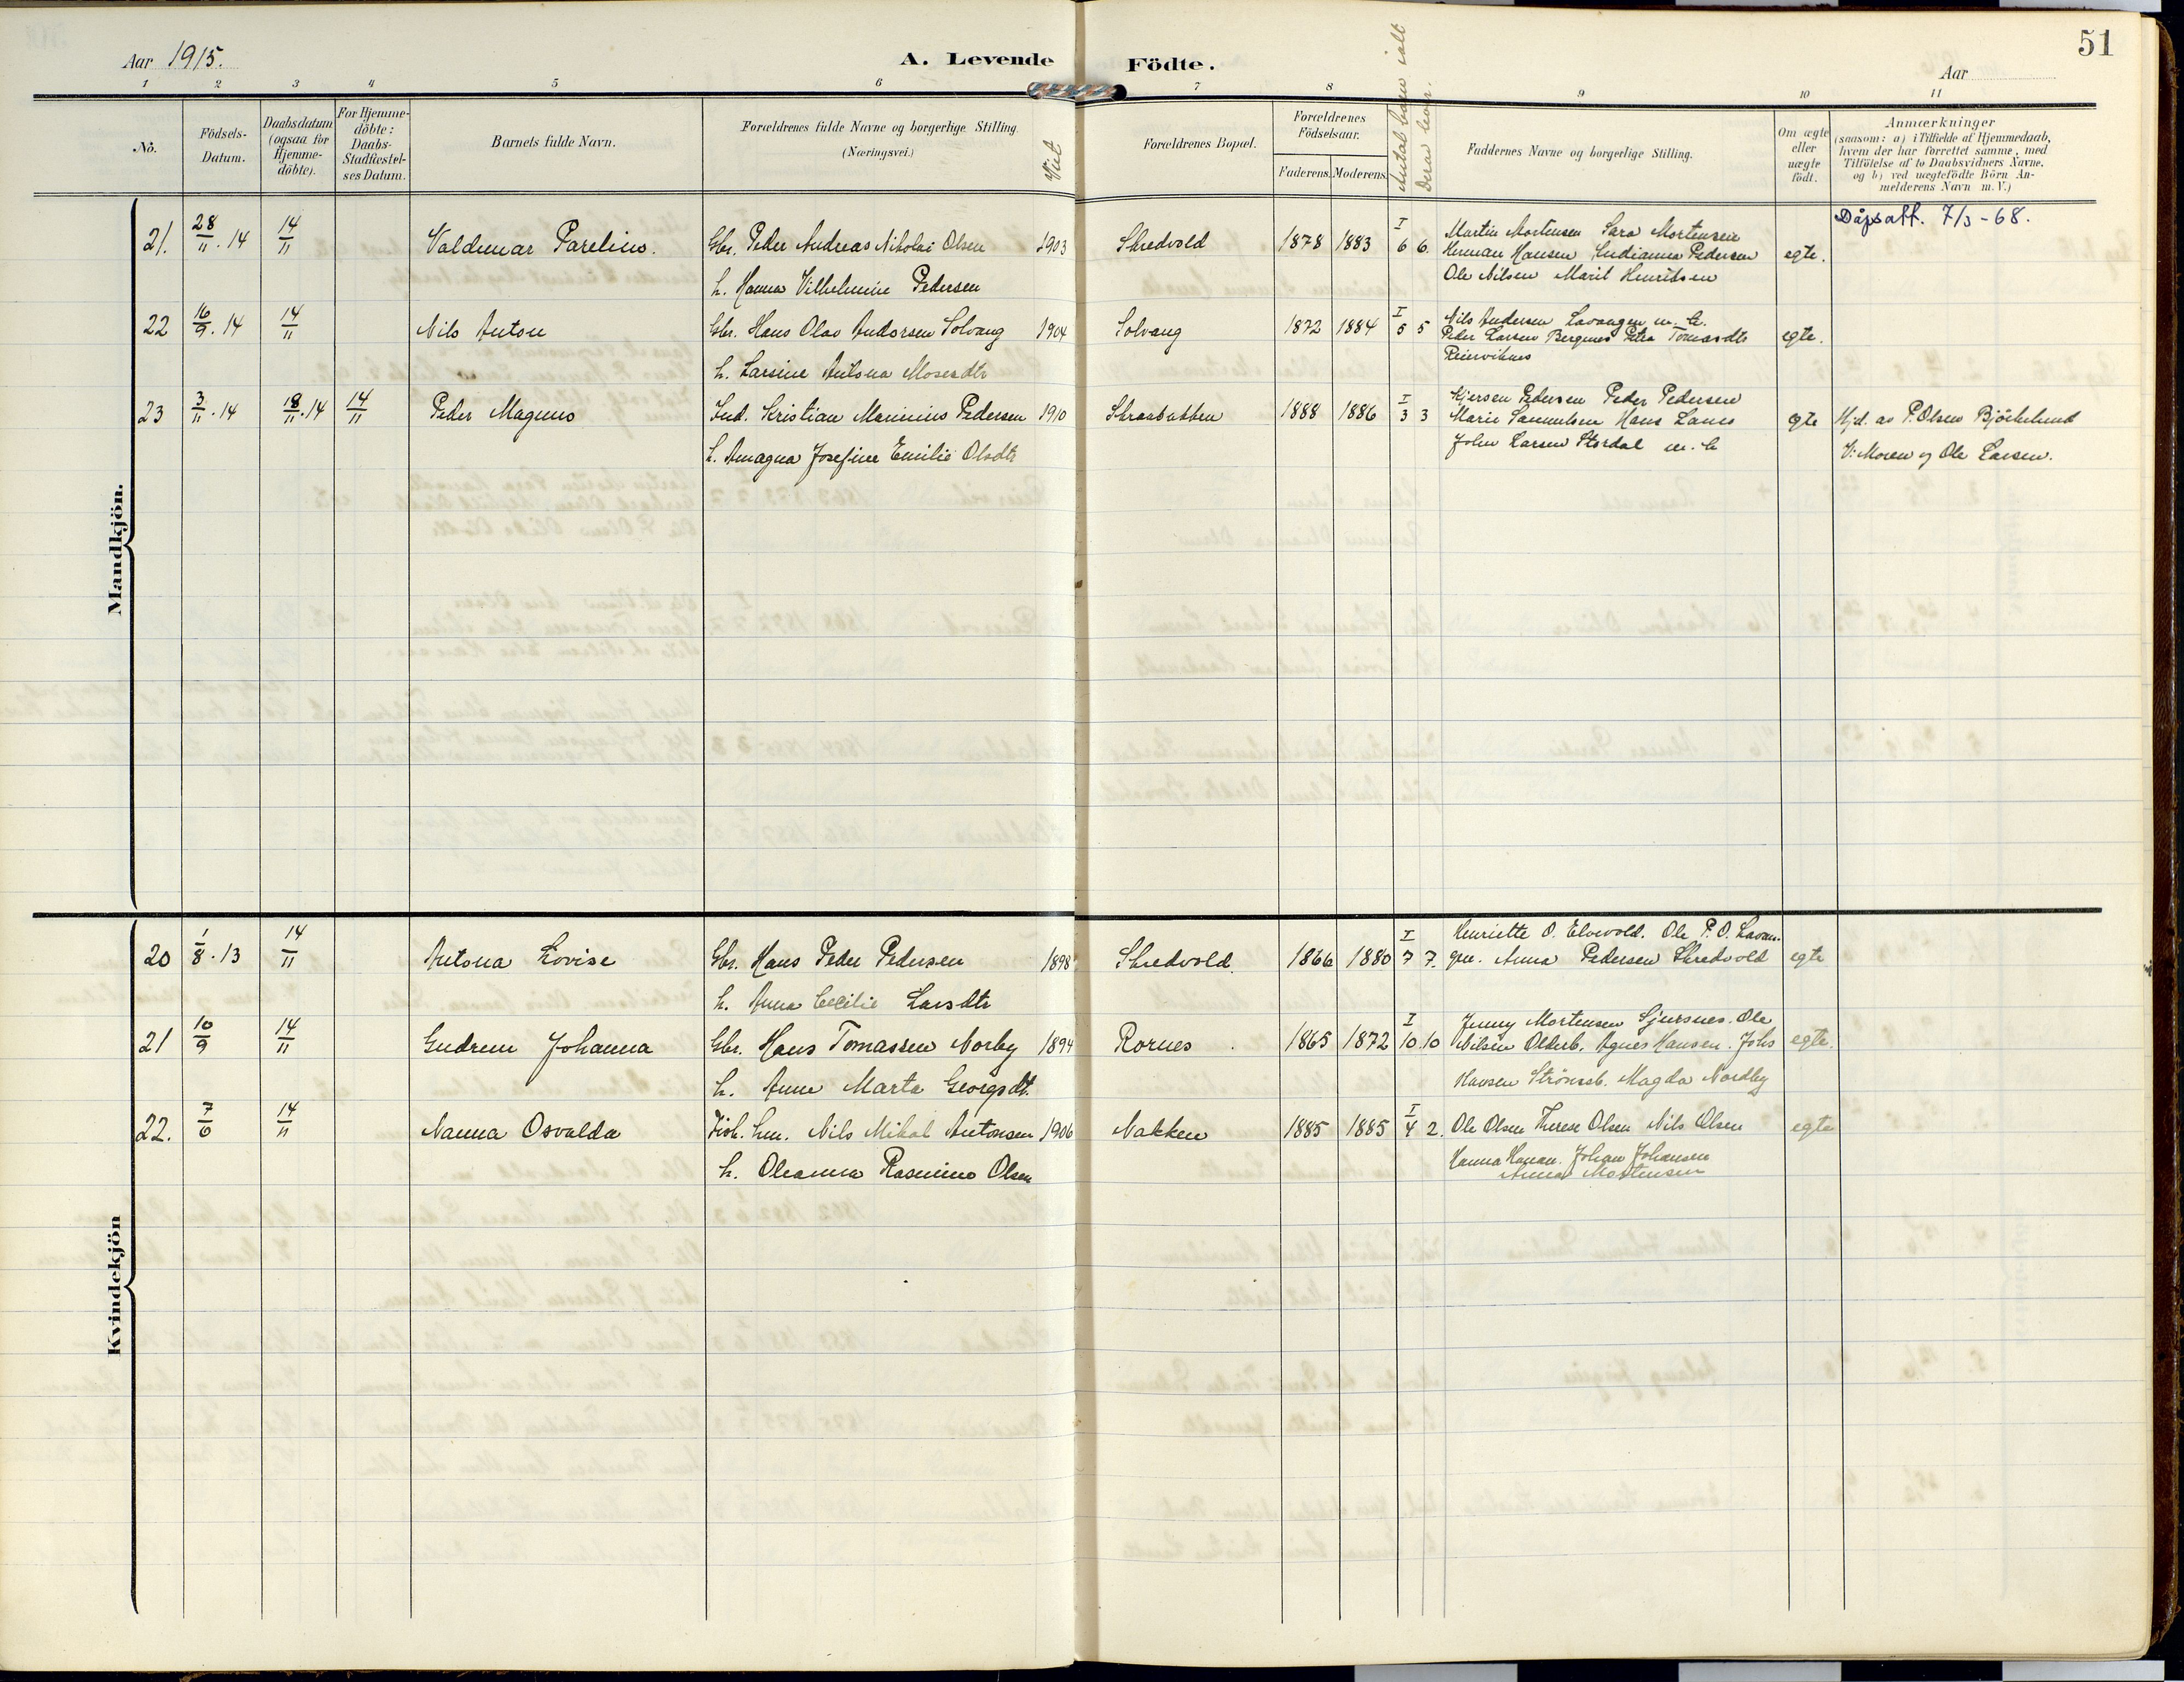 51
Aar 1915.
A. Levende Födte.
Aar
1 2 3 4 5 6 7 8 9 10 11
No.
Födsels-
Datum.
Daabsdatum
(ogsaa for
Hjemme-
döbte).
For Hjemme-
döbte:
Daabs-
Stadfæstel-
ses Datum.
Barnets fulde Navn.
Forældrenes fulde Navne og borgerlige Stilling.
(Næringsvei.)
Viet
Forældrenes Bopæl.
Forældrenes
Födselsaar.
Faderens. Moderens.
Antal barn ialt
derav lever.
Faddernes Navne og borgerlige Stilling.
Om ægte
eller
uægte
födt.
Anmærkninger
(saasom: a) i Tilfælde af Hjemmedaab,
hvem der har forrettet samme, med
Tilföielse af to Daabsvidners Navne.
og b) ved uægtefödte Börn An-
melderens Navn m. V.)
Mandkjön.
21. 28/11.14 14/11 Valdemar Parelius. Gbr. Peder Andreas Nikolai Olsen 1903 Skredvold 1878 1883 I 6 6 Martin Mortensen Sara Mortensen Dåpsatt. 7/3-68.
Herman Hansen Pedersen egte.
h. Hanna Vilhelmine Pedersen Ole Nilsen Marit Henriksen
22 16/9.14 14/11 Nils Anton Gbr. Hans Olav Andorsen Solvang 1904 Solvang 1872 1884 I 5 5 Nils Andersen Lavangen m. h.
Peder Larsen Bergnes Petra egte.
h. Larsine Antona Mosesdtr
23 3/11.14 18/11.14 14/11 Peder Magnus Ind. Kristian Marinius Pedersen 1910 1888 1886 I 3 3 Pedersen Peder Pedersen
Marie Samuelsen Hans egte Hjd. av P. Olsen
h. Amagna Josefine Emilie Olsdtr John Larsen Stordal m. h V: Moren og Ole Larsen.
Kvindekjön
20 1/8.13 14/11 Antona Lovise Gbr. Hans Peder Pedersen 1898 Skredvold. 1866 1880 I 7 7. Henriette O. Elvevold. Ole P. O. Lavan-
gen. Anna Pedersen Skredvold egte
h. Anna Cecilie Larsdtr
21 10/9 14/11 Gudrun Johanna Gbr. Hans Tomassen Norby 1894 Rornes 1865 1872 I 10. 10 Jenny Mortensen Sjursnes. Ole
Nilsen Olderb. Agnes Hansen. Johs egte.
h. Anne Marta Georgsdt. Hansen Strömsb. Magda Nordby
22. 7/6 14/11 Nanna Osvalda Fisk. hm. Nils Mikal Antonsen 1906 Nakken 1885 1885 I 4 2. Ole Olsen Therese Olsen Nils Olsen egte
h. Oleanna Rasmine Olsen Hanna Johan Johansen
Anna Mortensen